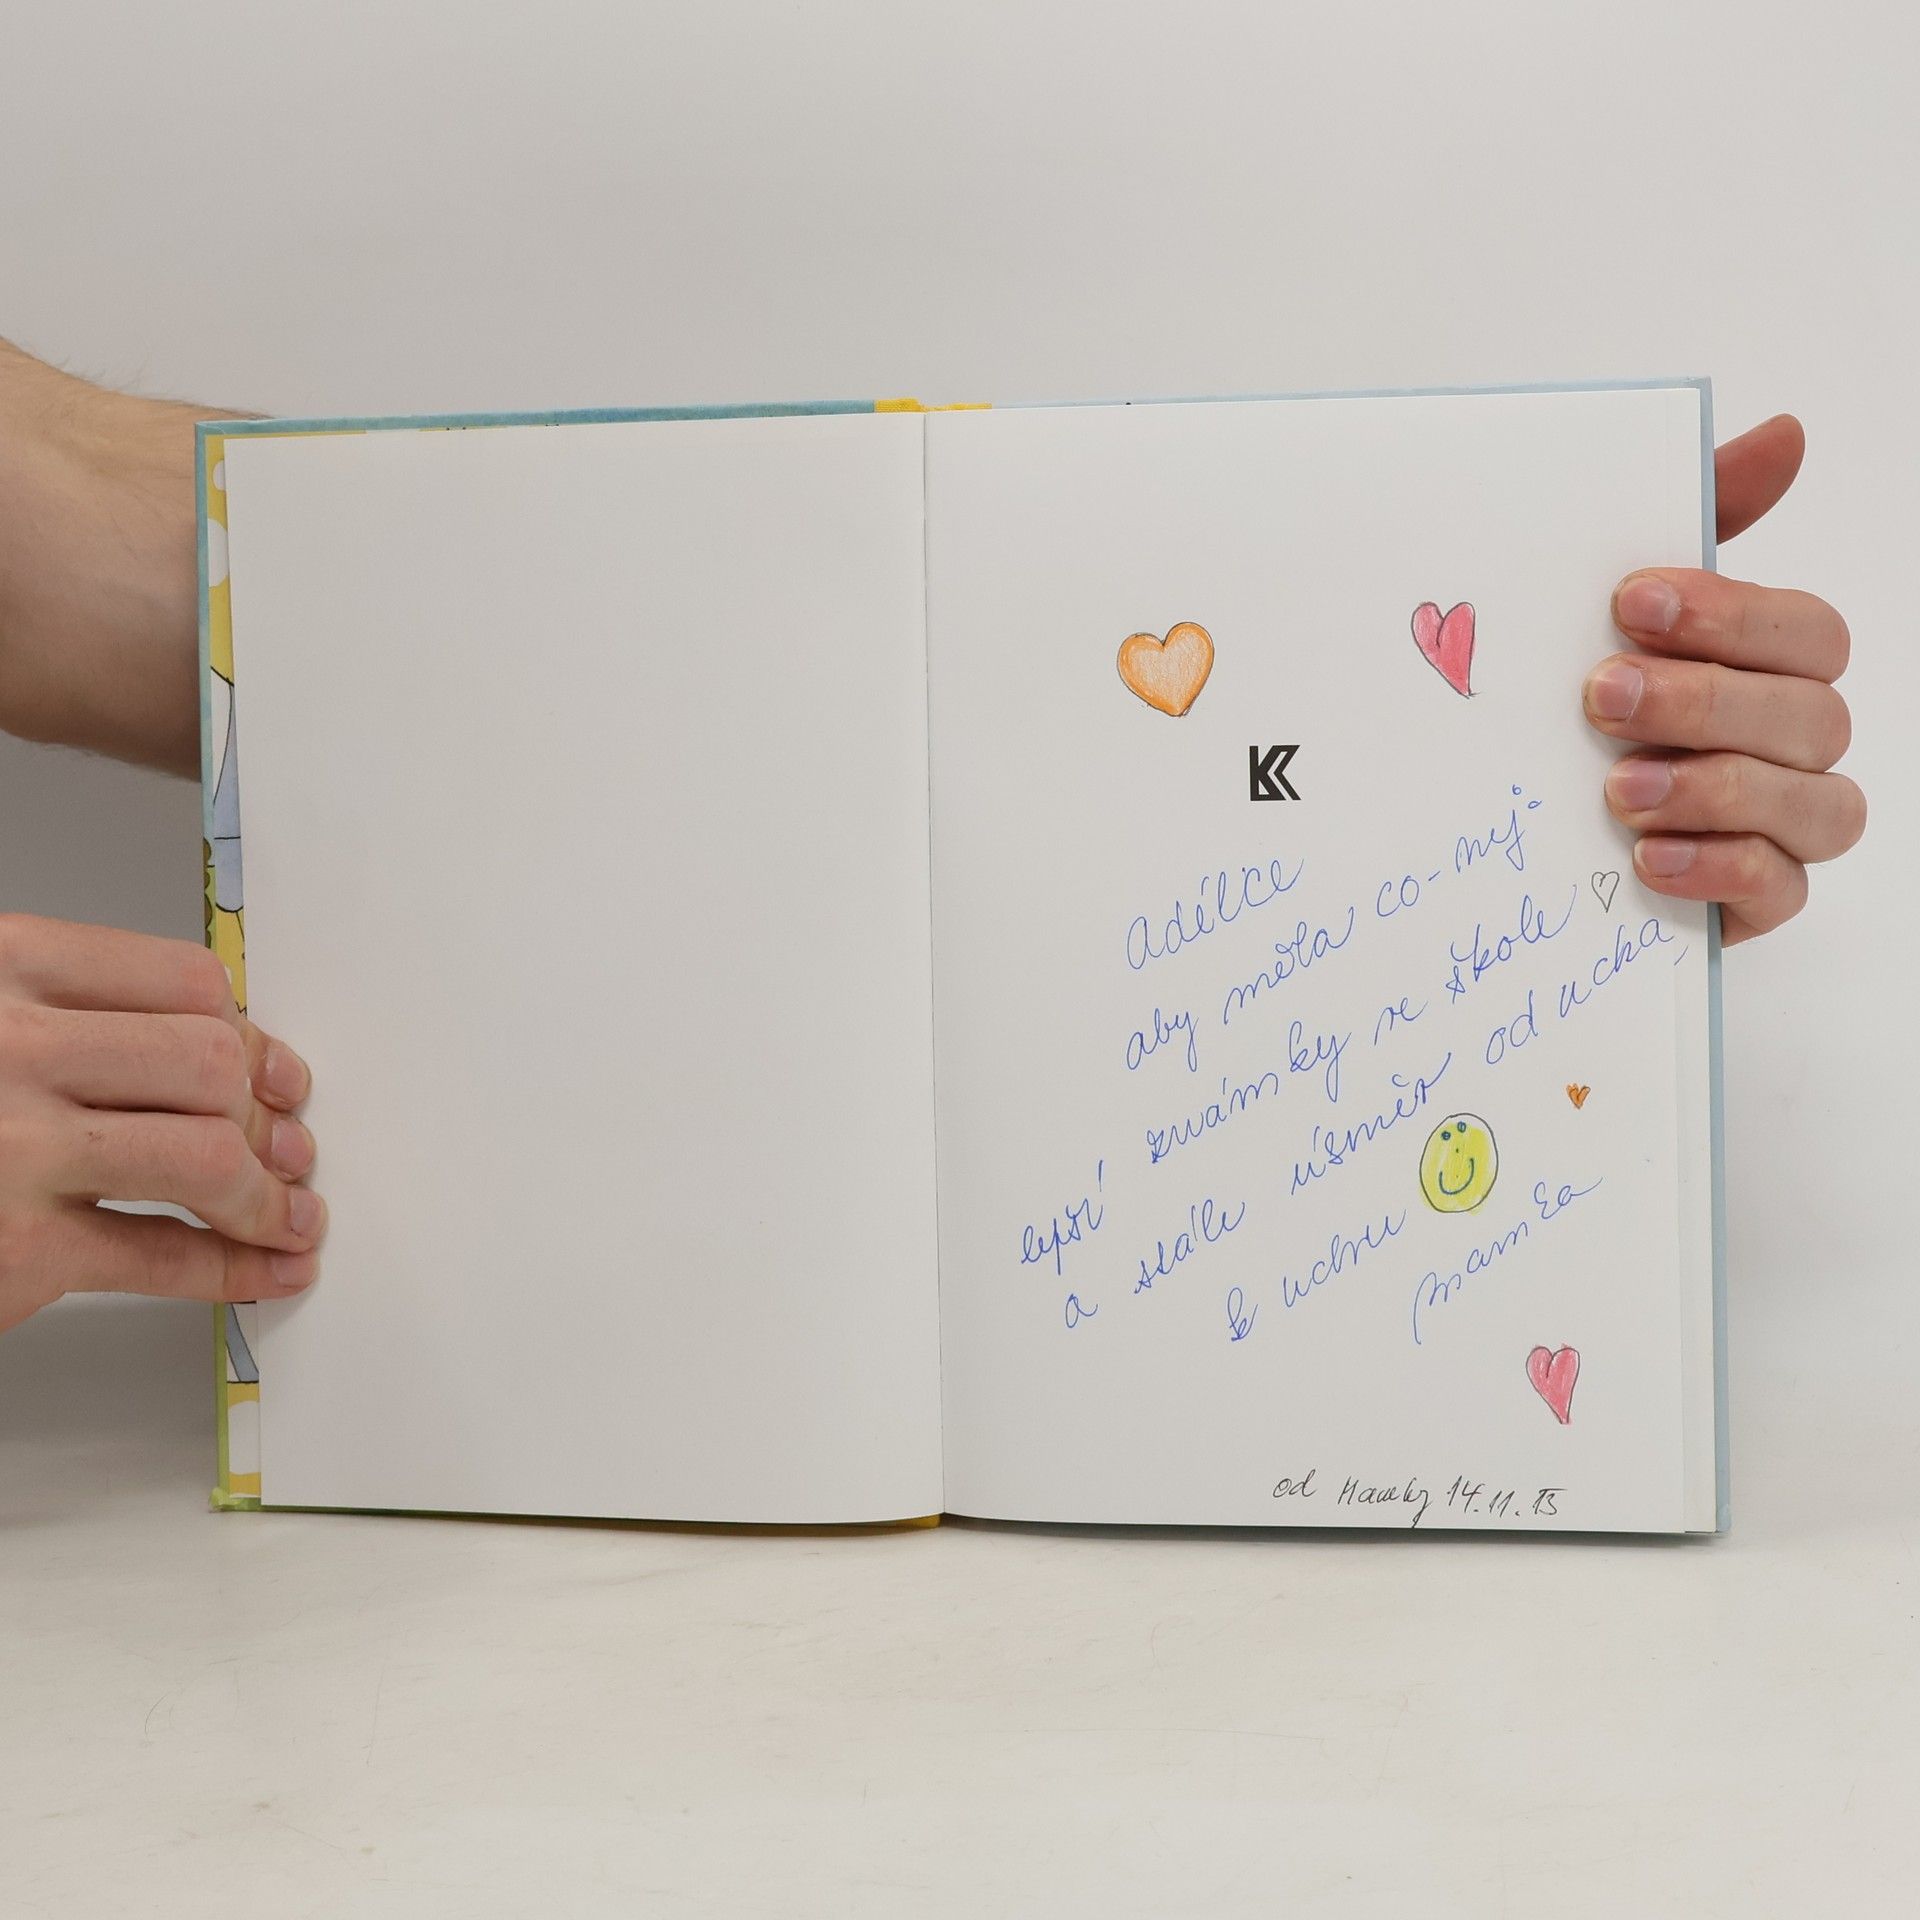 K
Adélce
aby měla co-nej-
lepší známky ve škole
a stále úsměv od ucka
k uchu
mamka
od Mamky 14.11.13